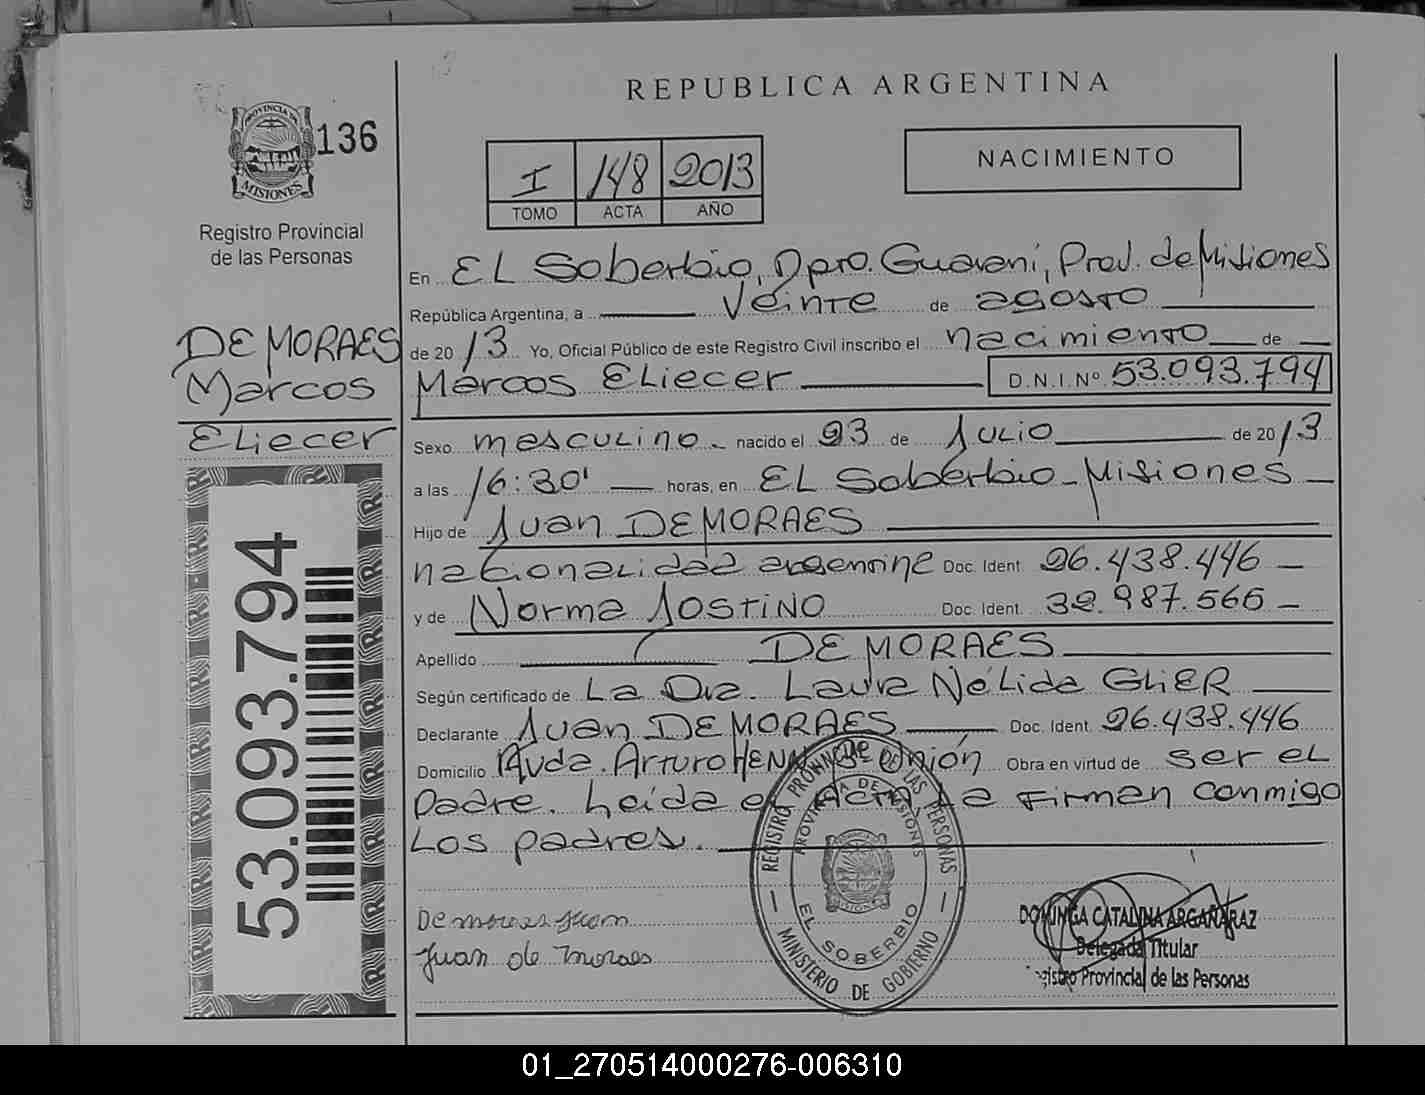 REPUBLICA ARGENTINA
PROVINCIA DE
MISIONES
136
Registro Provincial
de las Personas
I 148 2013
TOMO ACTA AÑO
NACIMIENTO
DE MORAES
Marcos
Eliecer
53.093.794
En EL Soberbio, Dpto. Guaraní, Prov. de Misiones
República Argentina, a Veinte de agosto
de 2013 Yo, Oficial Público de este Registro Civil inscribo el nacimiento de
Marcos Eliecer D.N.I.Nº 53.093.794
Sexo masculino nacido el 23 de Julio de 2013
a las 16:30' horas, en EL Soberbio - Misiones
Hijo de Juan DE MORAES
nacionalidad argentina Doc. Ident. 26.438.446
y de Norma JOSTINO Doc. Ident. 987.566
Apellido DE MORAES
Según certificado de La Dra. Laura Nélida GLIER
Declarante Juan DE MORAES Doc. Ident. 26.438.446
Domicilio Avda. Arturo Obra en virtud de ser el
padre. Leída el Acta la firman conmigo
Los padres.
De moraes Juan
Juan de moraes
REGISTRO PROVINCIAL DE LAS PERSONAS
PROVINCIA DE MISIONES
EL SOBERBIO
MINISTERIO DE GOBIERNO
DOMINGA CATALINA ARGAÑARAZ
Delegada Titular
Registro Provincial de las Personas
01_270514000276-006310